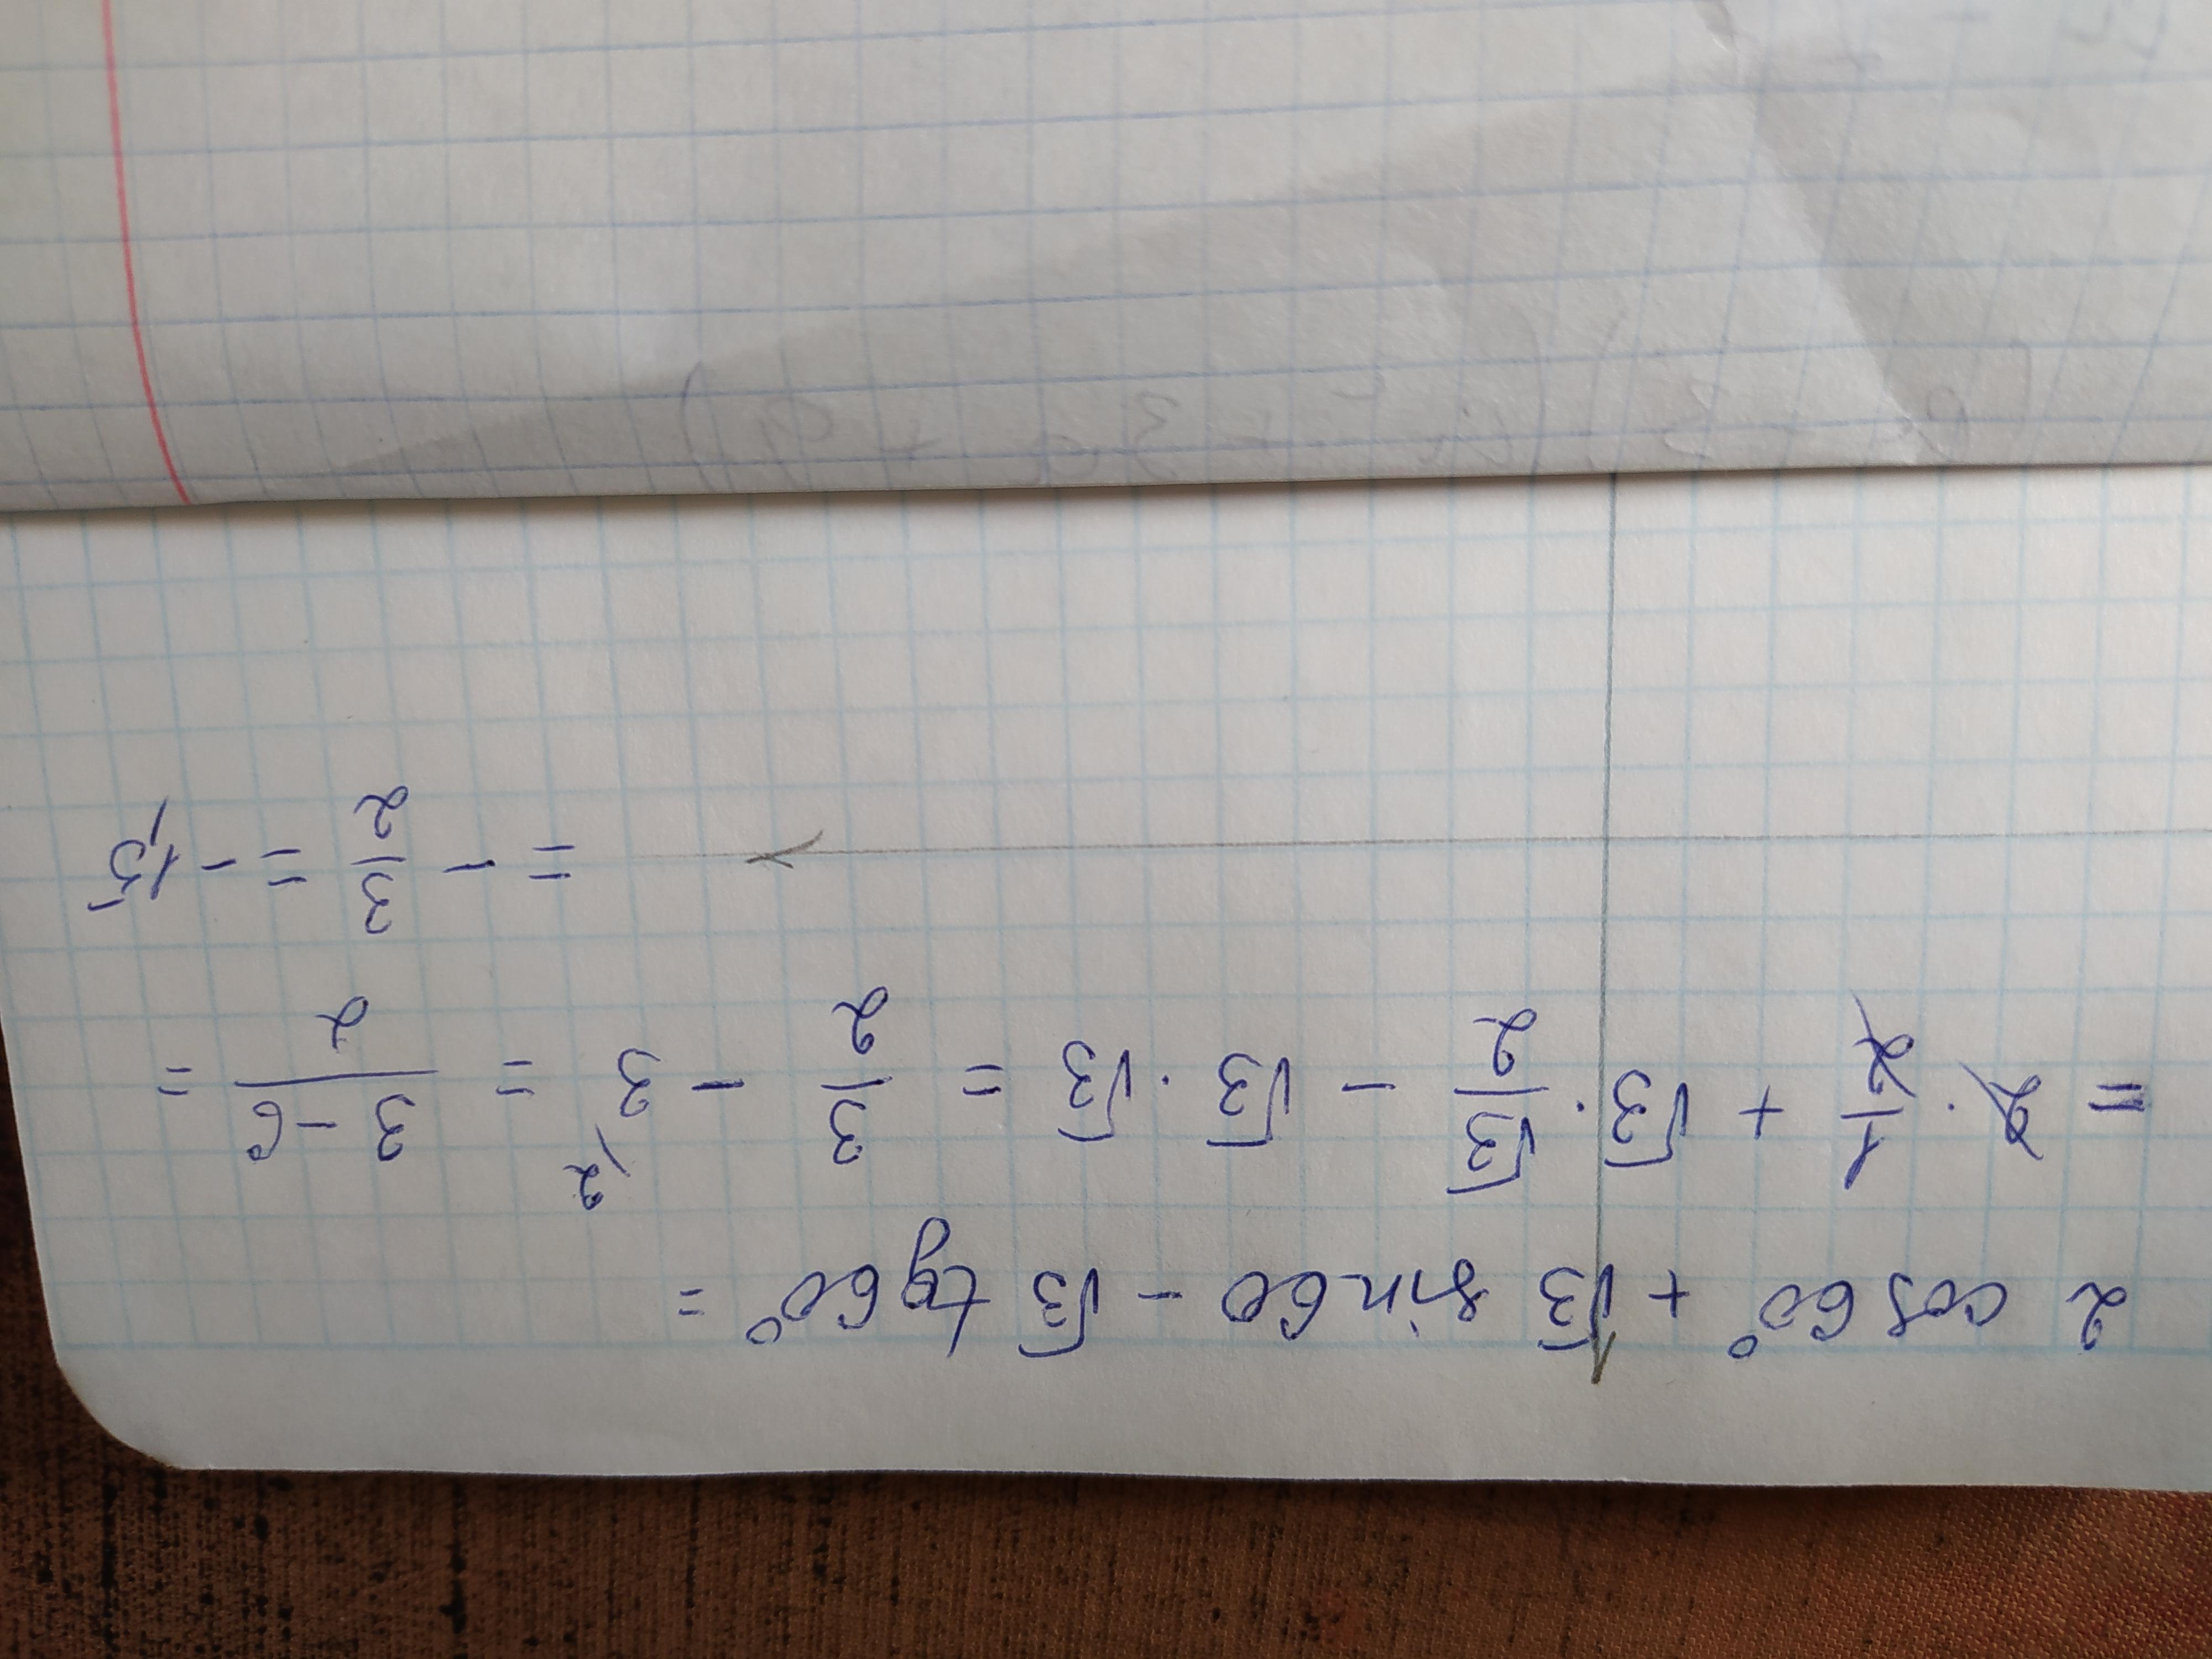 2 cos 60° + √3 sin 60 - √3 tg 60° =
= 2 · 1/2 + √3 · √3/2 - √3 · √3 = 3/2 - 3\2 = (3-6)/2 =
= - 3/2 = -1,5